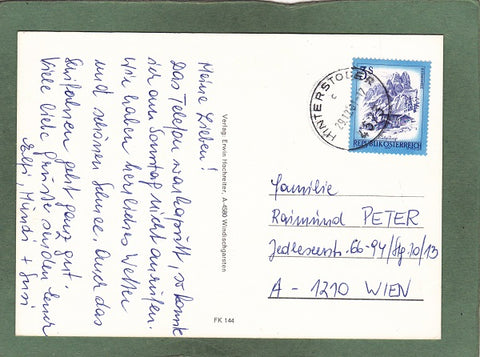 Meine Lieben!
Das Telefon war kaputt, so konnte
ich am Sonntag nicht anrufen.
Wir haben herrliches Wetter
und schönen Schnee. Auch das
Skifahren geht ganz gut.
Viele liebe Grüße senden Euch
Mundi + Susi
Verlag: Erwin Hochreiter, A-4580 Windischgarsten
FK 144
HINTERSTODER
5 S
REPUBLIK ÖSTERREICH
Familie
Raimund PETER
Jedleseerstr. 66-94/Stg. 10/13
A - 1210 WIEN